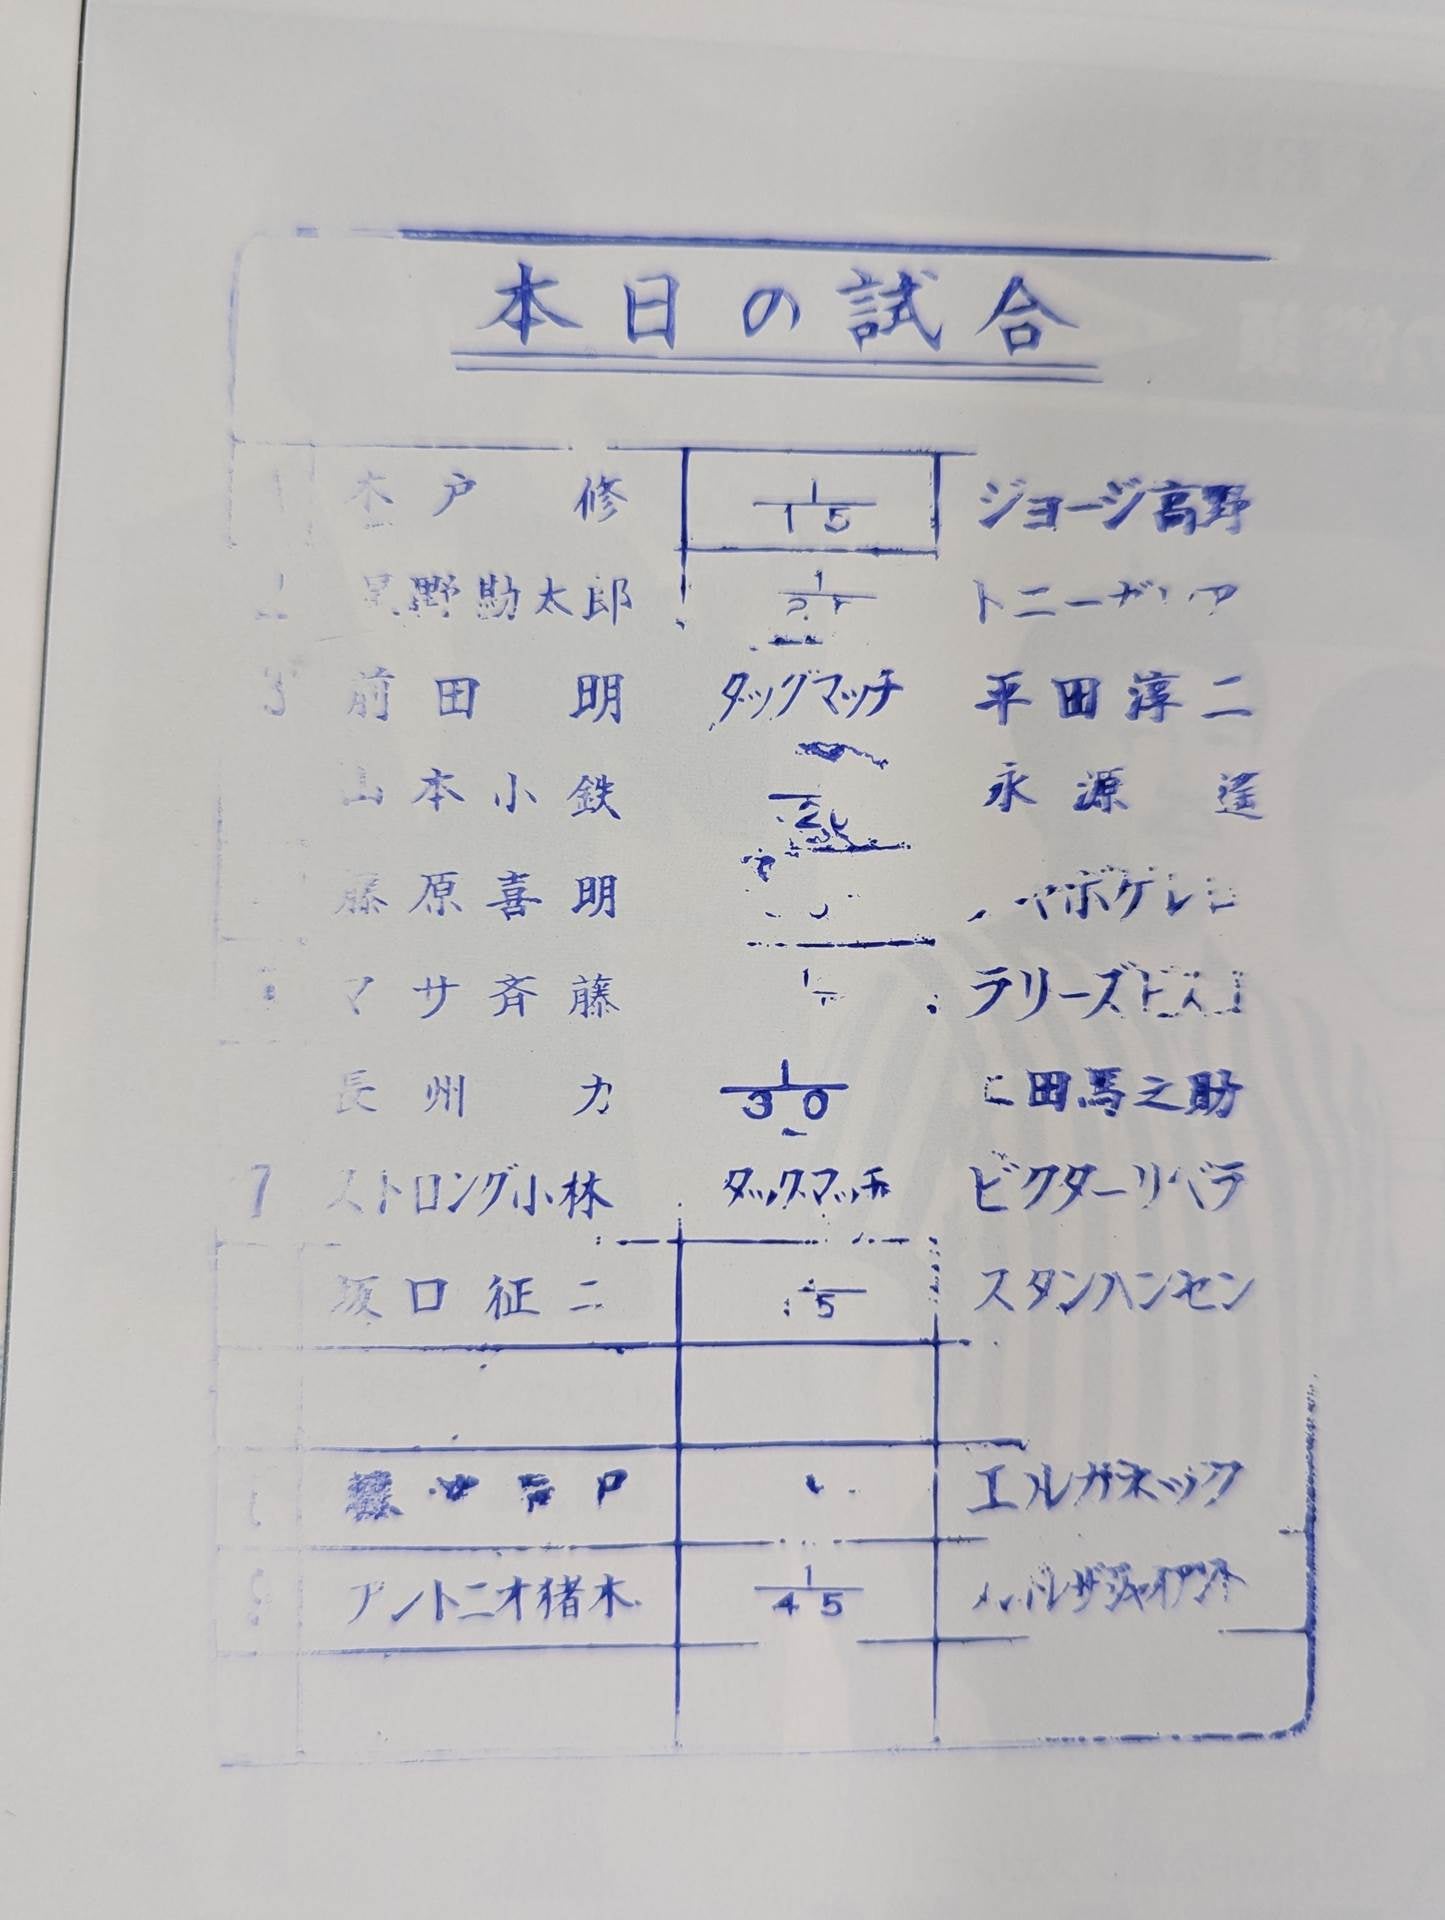 本日の試合
木戸 修 1/15 ジョージ高野
星野勘太郎 1/ トニーガ
3 前田 明 タッグマッチ 平田淳二
山本小鉄 永源 遥
藤原喜明
マサ斉藤 ラリーズビスコ
長州 力 1/30 上田馬之助
7 ストロング小林 タッグマッチ ビクターリベラ
坂口征二 スタンハンセン
エルガネック
アントニオ猪木 1/45 アンドレザジャイアント